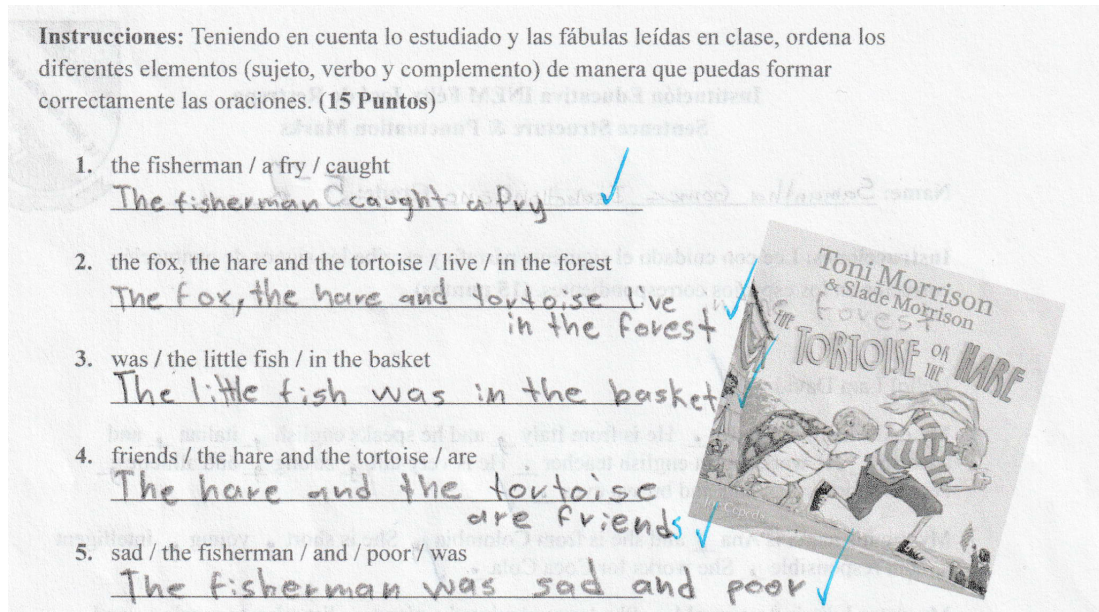 Instrucciones: Teniendo en cuenta lo estudiado y las fábulas leídas en clase, ordena los
diferentes elementos (sujeto, verbo y complemento) de manera que puedas formar
correctamente las oraciones. (15 Puntos)
1. the fisherman / a fry / caught
The fisherman caught a fry
2. the fox, the hare and the tortoise / live / in the forest
The fox, the hare and tortoise live
in the forest
3. was / the little fish / in the basket
The little fish was in the basket
4. friends / the hare and the tortoise / are
The hare and the toutoise
are friends
5. sad / the fisherman / and / poor / was
The fisherman was sad and poor
Toni Morrison
& Slade Morrison
THE TORTOISE OR THE HARE